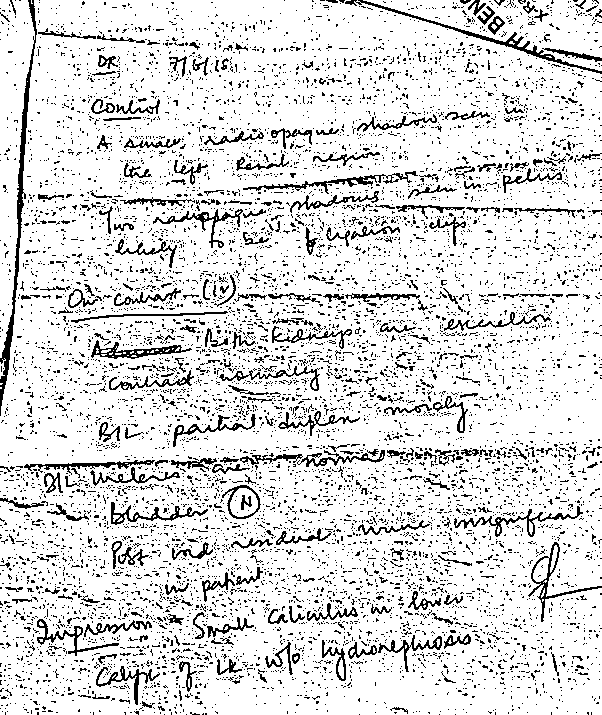 DR 7/6/18
Control
A small radioopaque shadow seen in
the left Renal region
Two radiopaque shadows seen in pelvis
likely to be ligation clips
On contrast (IV)
Both kidneys are excretion
contrast normally
B/L partial duplex moiety
B/L ureters are normal
Bladder (N)
Post void residual urine insignificant
in patient
Impression - Small calculus in lower
Calyx of LK w/o hydronephrosis